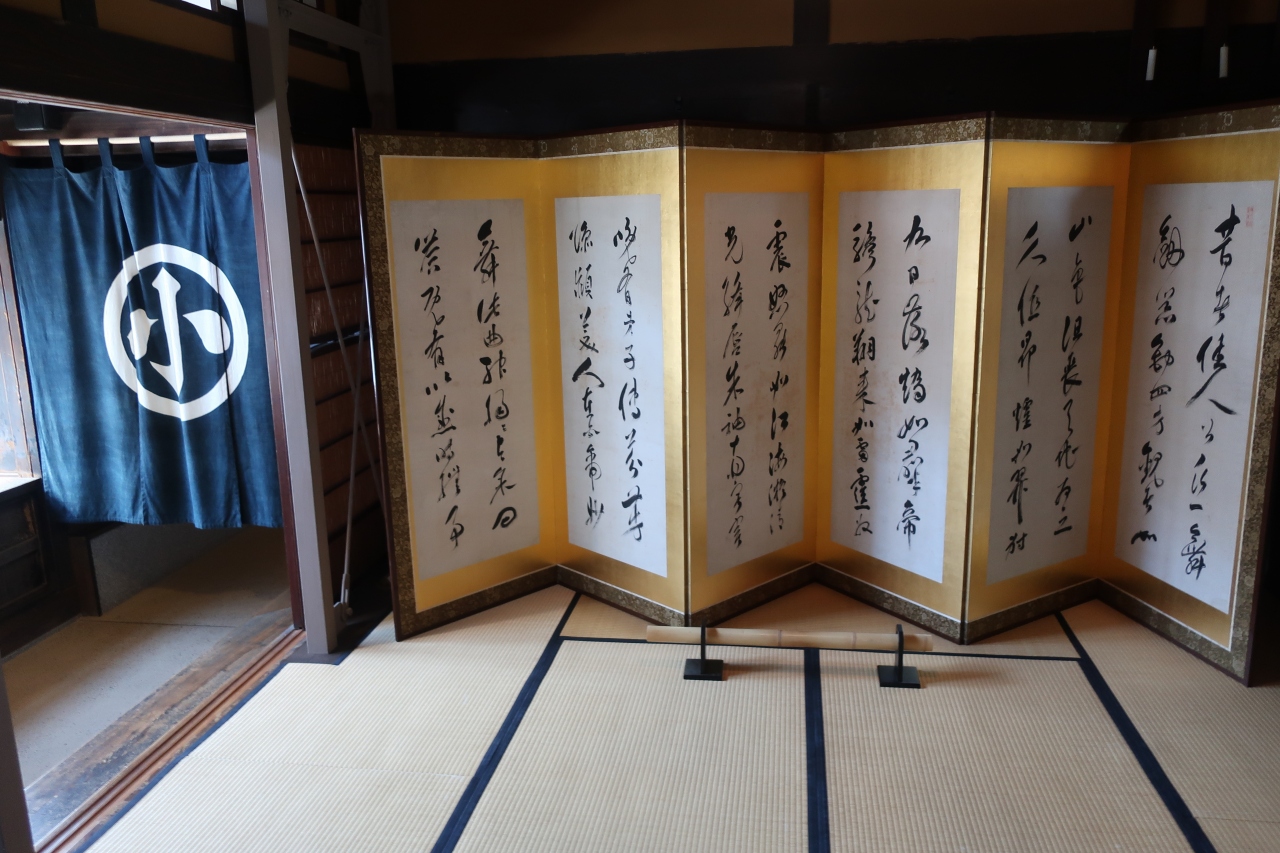 小
昔有佳人公孫氏一舞
劍器動四方觀者如
山色沮喪天地為之
久低昂㸌如羿射
九日落矯如群帝
驂龍翔來如雷霆收
震怒罷如江海凝清
光絳唇朱袖兩寂寞
晚有弟子傳芬芳
臨潁美人在白帝妙
舞此曲神揚々與余問
答既有以感時撫事